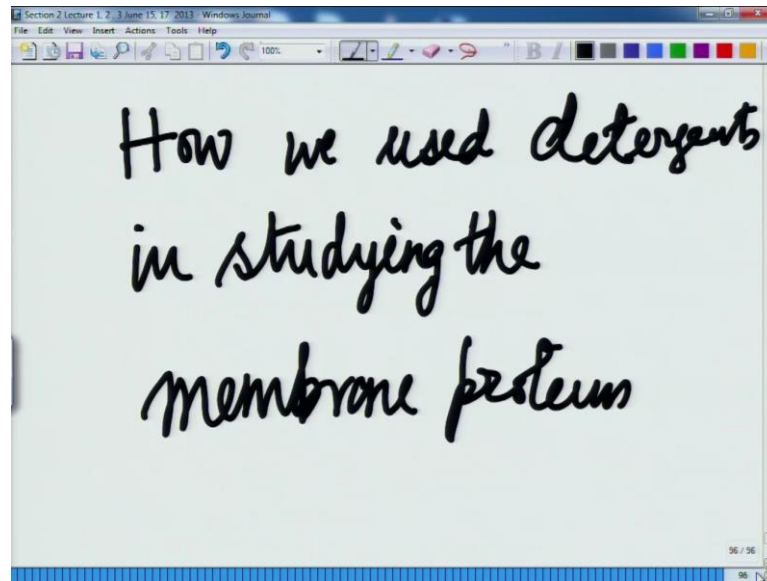 Section 2 Lecture 1, 2 , 3 June 15, 17 2013 - Windows Journal
File Edit View Insert Actions Tools Help
100% B I
How we used detergents
in studying the
membrane proteins
96 / 96
96